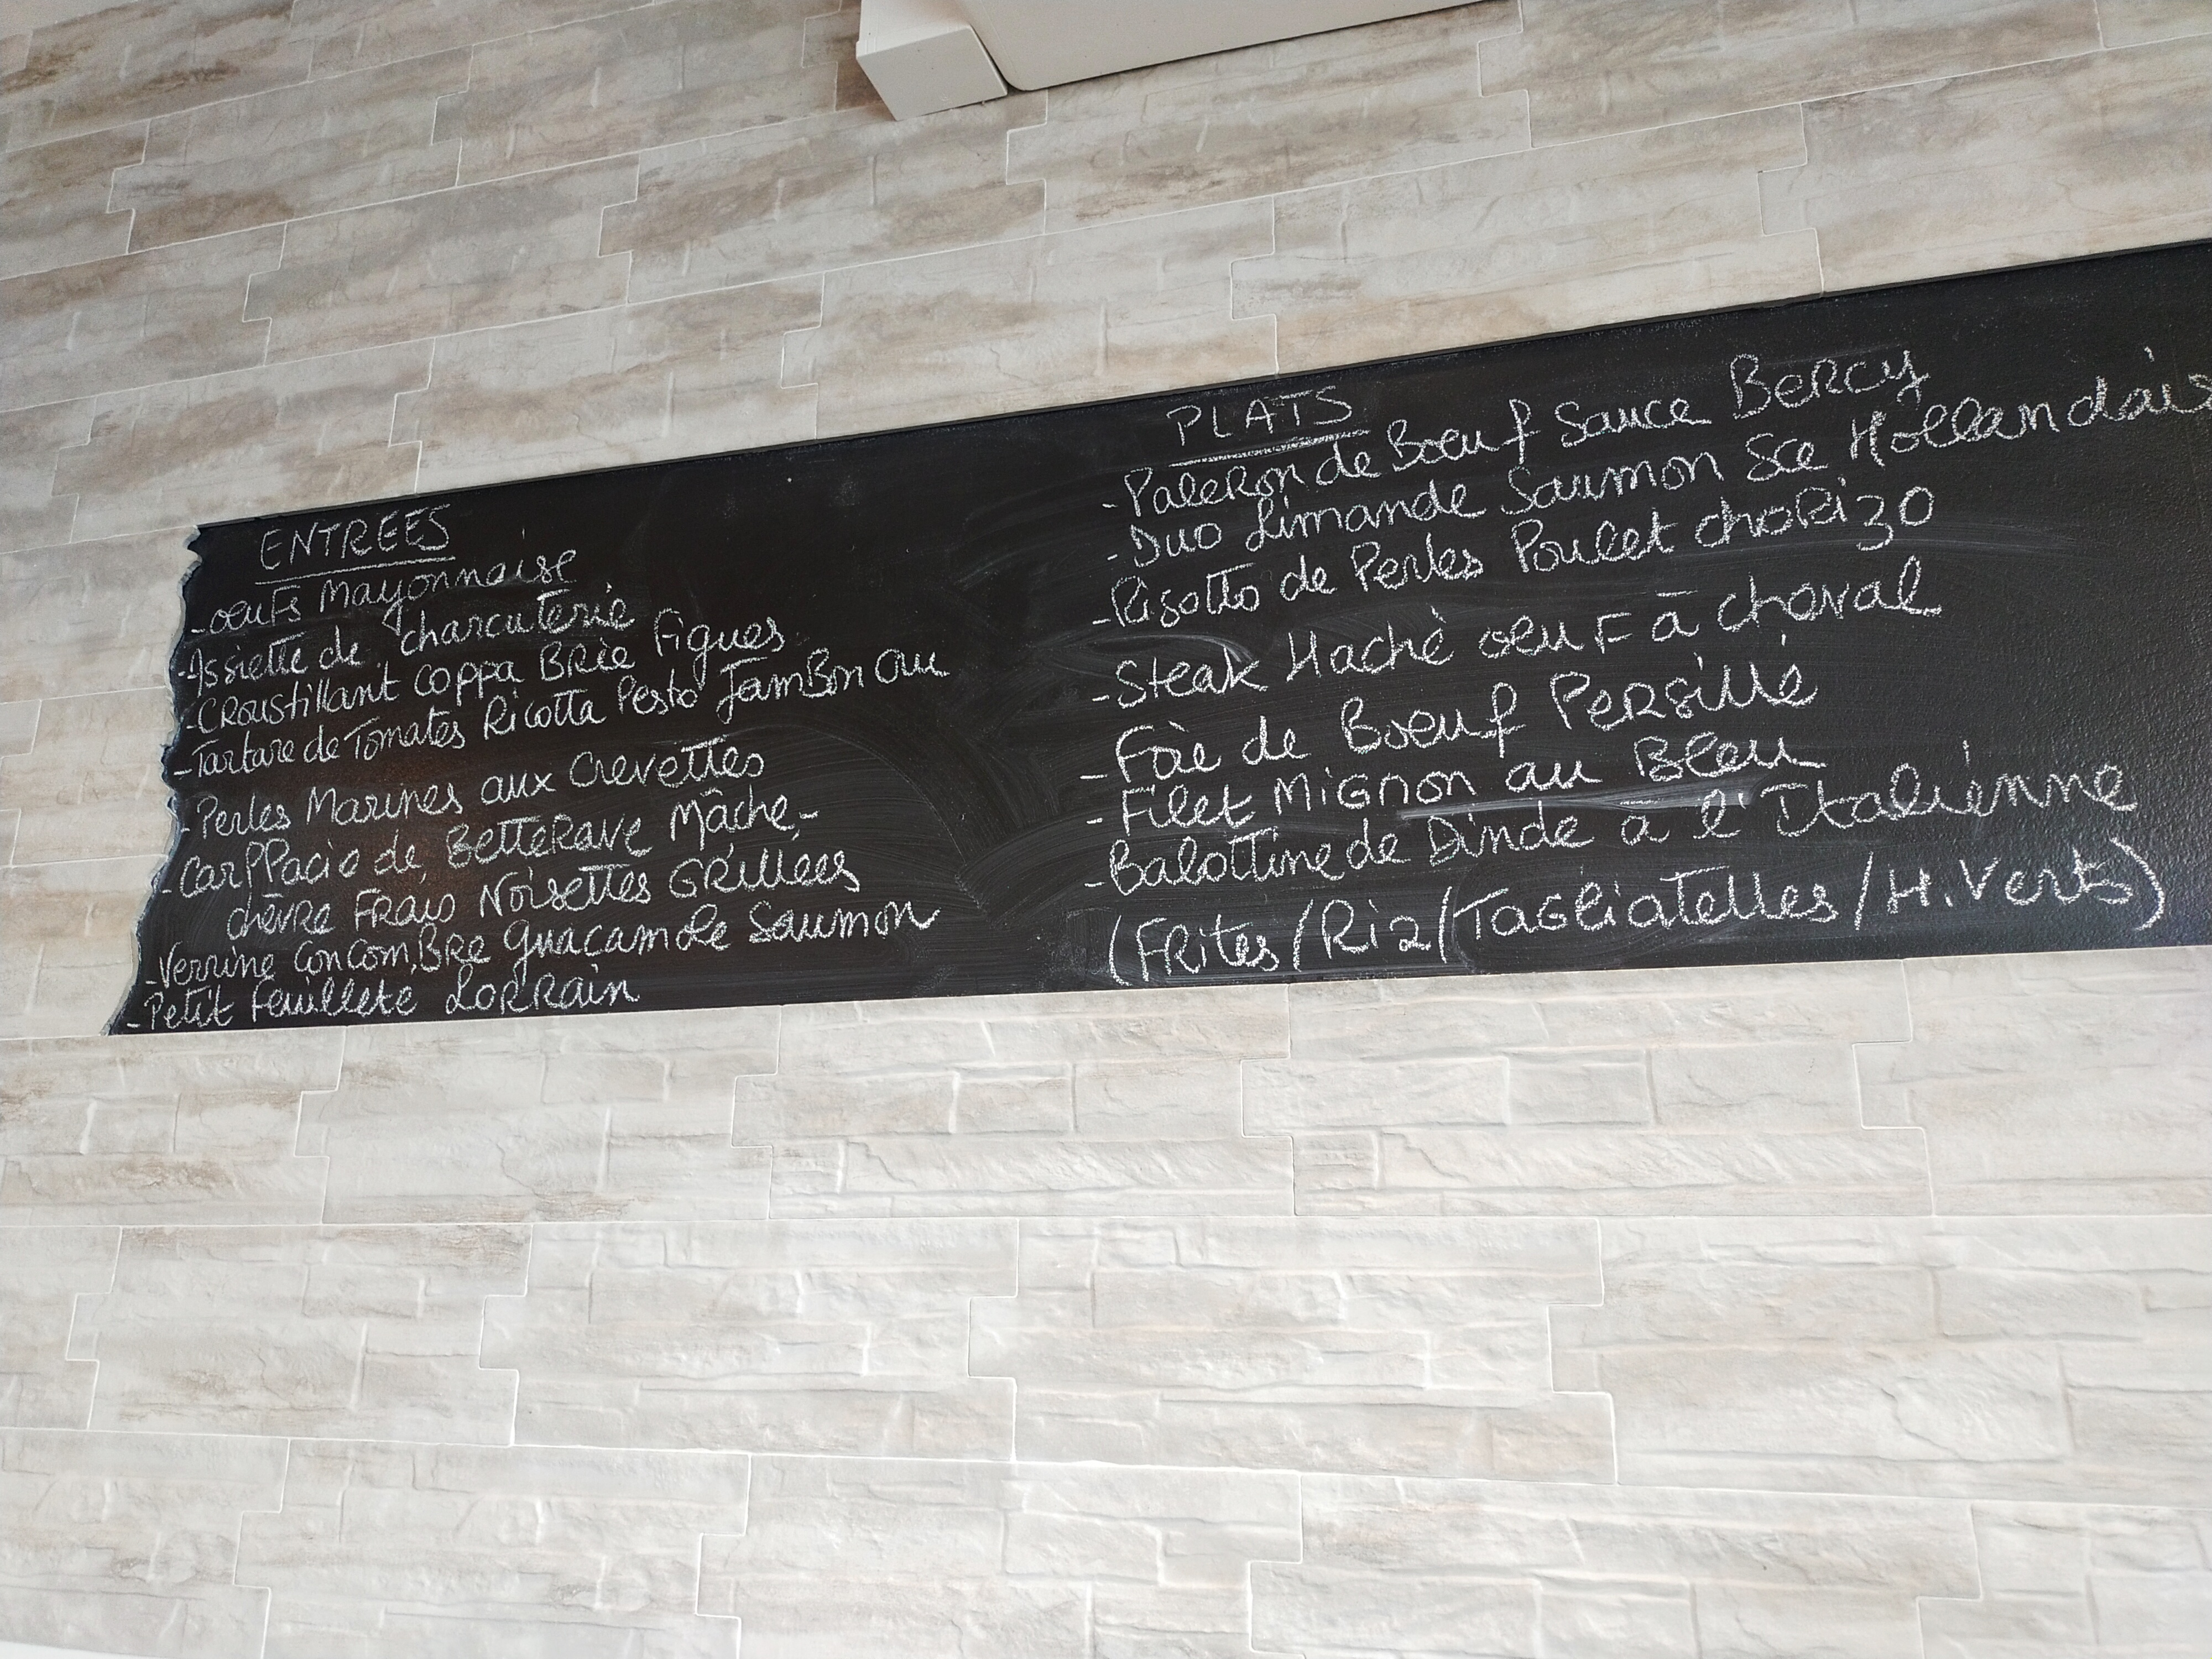 ENTREES
-oeufs Mayonnaise
-Assiette de charcuterie
-CRoustillant coppa BRie Figues
-Tartare de Tomates Ricotta Pesto JamBon cru
-Perles Marines aux Crevettes
-CarPPacio de BetteRave Mâche-
chèvre Frais Noisettes GRillées
-Verrine ConcomBRe guacamole Saumon
-Petit Feuilleté LoRRain
PLATS
-PaleRon de Boeuf Sauce BeRcy
-Duo Limande Saumon Sce Hollandais
-Risotto de Perles Poulet choRizo
-Steak Haché oeuF à cheval
-Foie de Boeuf PeRsillé
-Filet MiGnon au Bleu
-Balottine de Dinde à l'Italienne
(FRites/Riz/TaGliatelles/H.Verts)